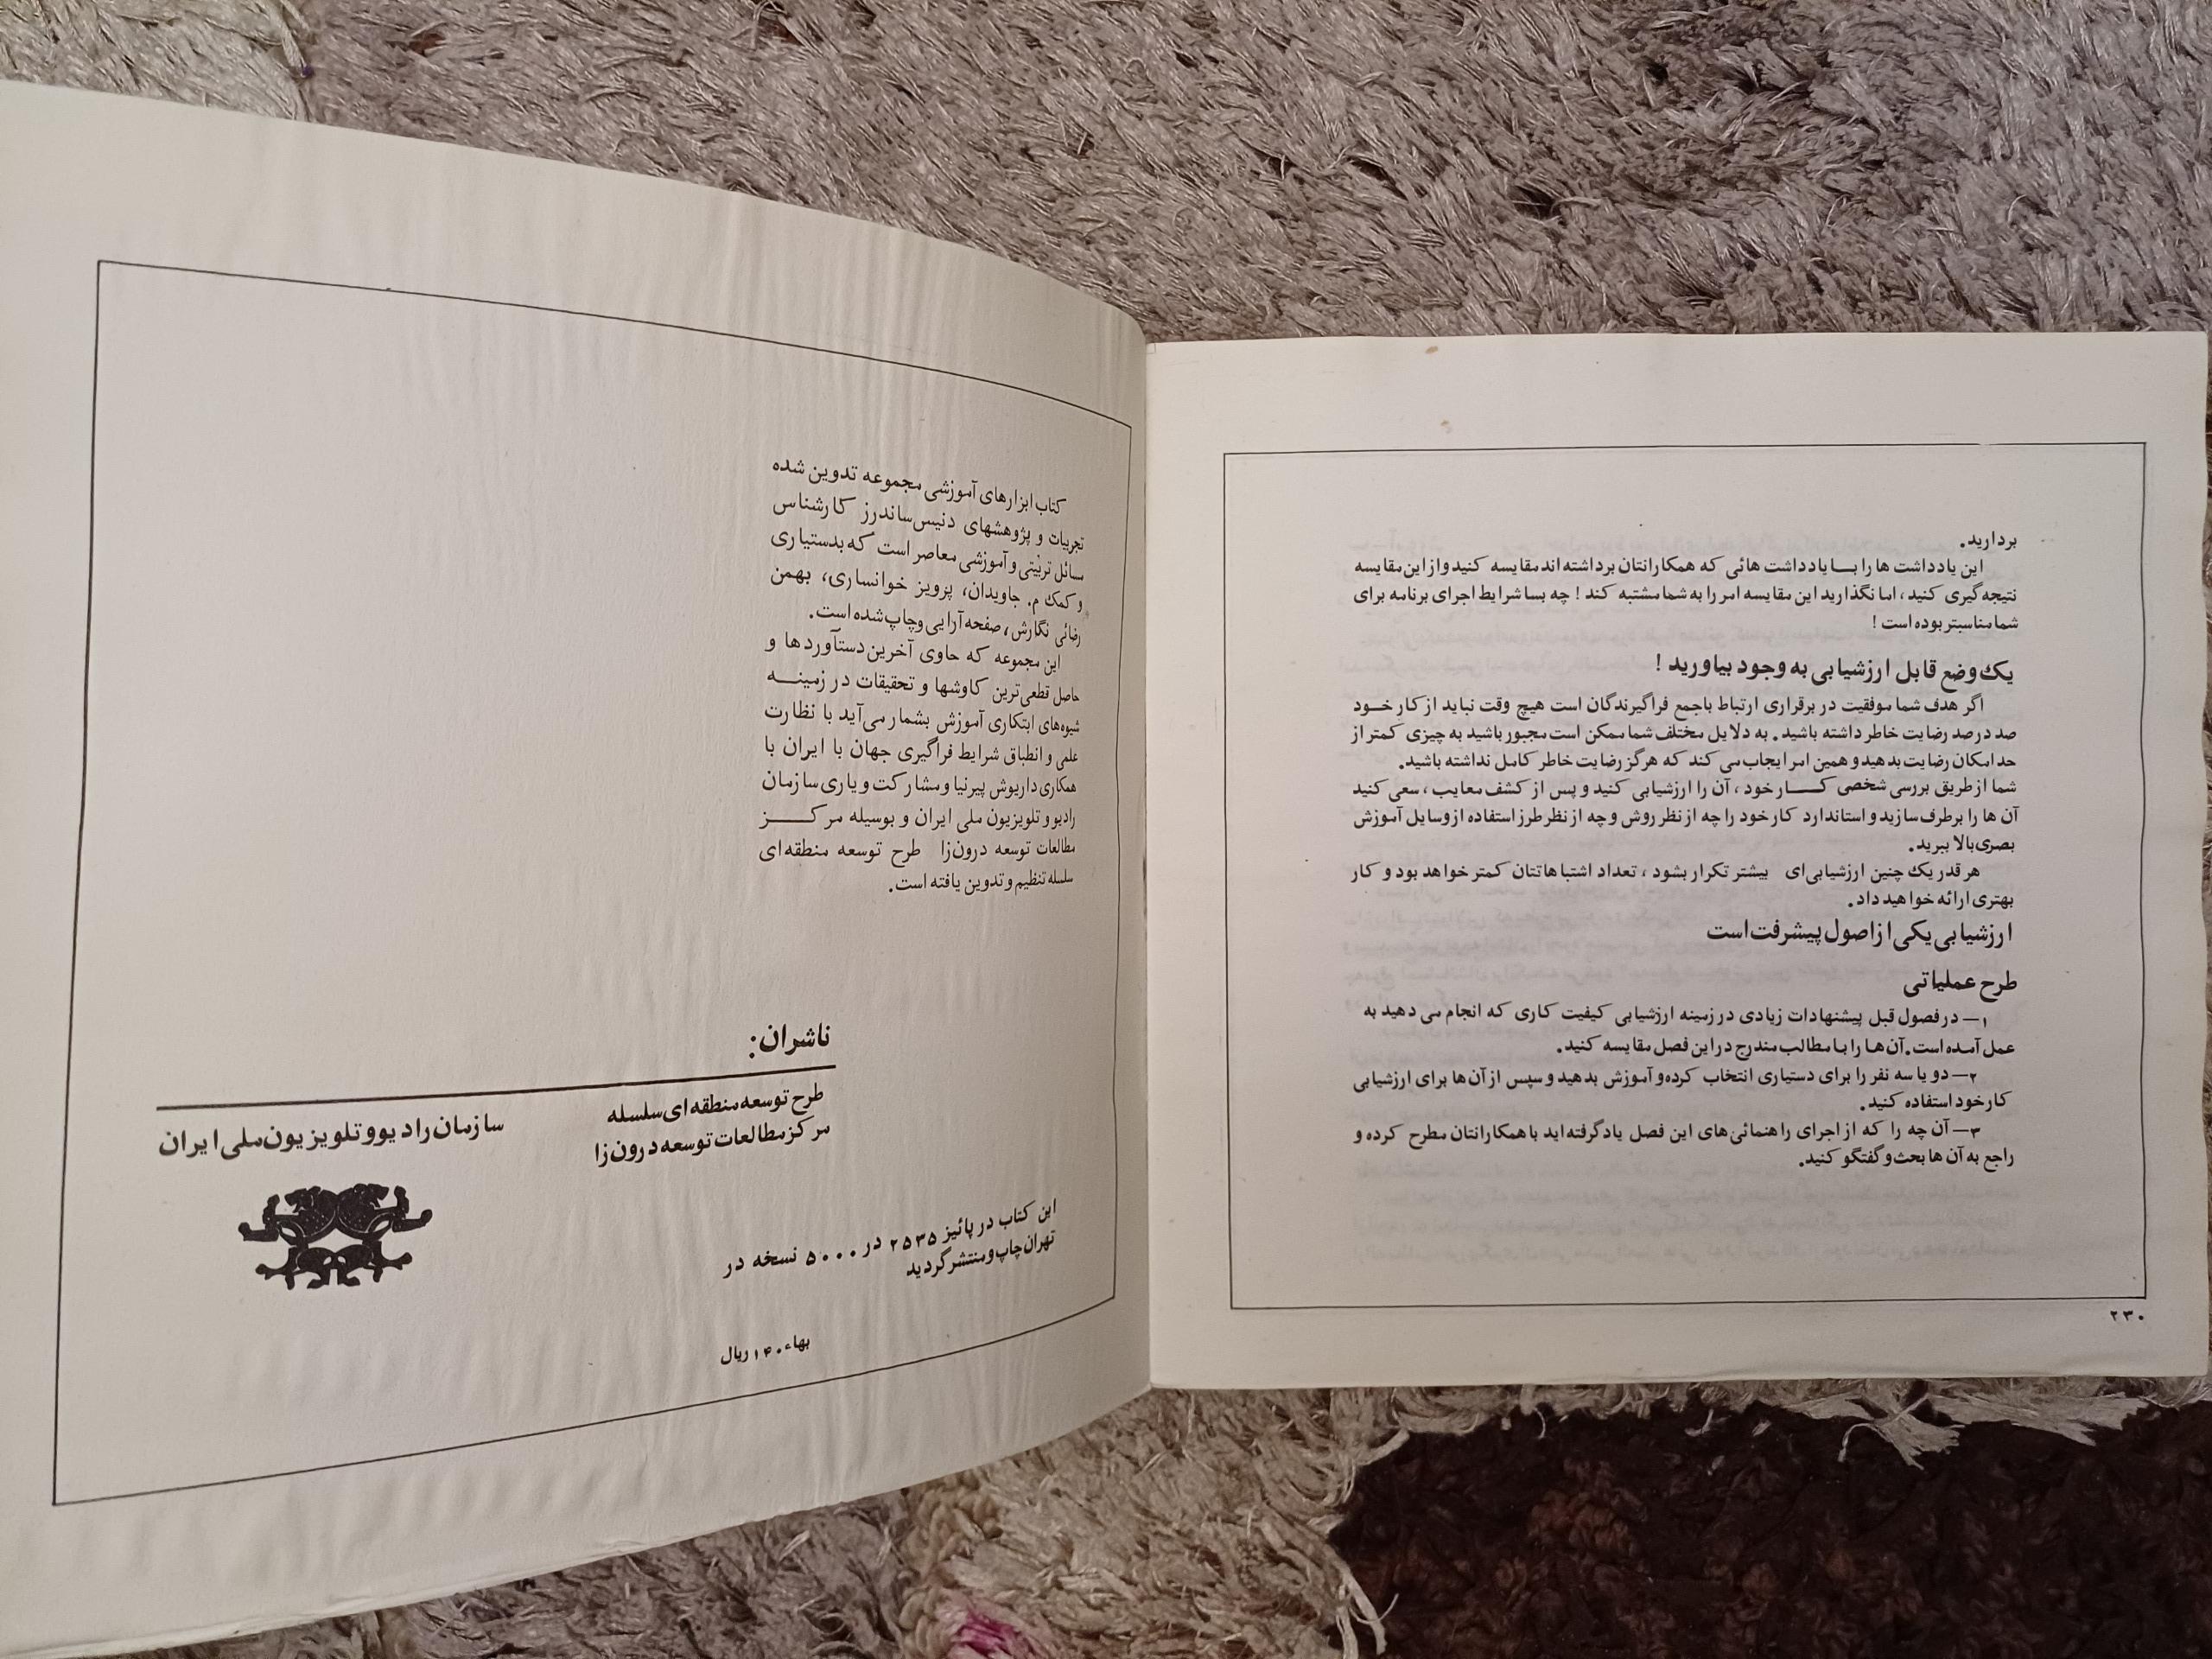 بردارید.
این یادداشت ها را بــا یادداشت هائی که همکارانتان برداشته اند مقایسه کنید و از این مقایسه
نتیجه گیری کنید ، اما نگذارید این مقایسه امر را به شما مشتبه کند ! چه بسا شرایط اجرای برنامه برای
شما مناسبتر بوده است !
یک وضع قابل ارزشیابی به وجود بیاورید !
اگر هدف شما موفقیت در برقراری ارتباط با جمع فراگیرندگان است هیچ وقت نباید از کار خــود
صد درصد رضایت خاطر داشته باشید . به دلایل مختلف شما ممکن است مجبور باشید به چیزی کمتر از
حد امکان رضایت بدهید و همین امر ایجاب می کند که هرگز رضایت خاطر کامل نداشته باشید.
شما از طریق بررسی شخصی کـــار خود ، آن را ارزشیابی کنید و پس از کشف معایب ، سعی کنید
آن ها را برطرف سازید و استاندارد کار خود را چه از نظر روش و چه از نظر طرز استفاده از وسایل آموزش
بصری بالا ببرید.
هر قدر یک چنین ارزشیابی‌ای بیشتر تکرار بشود ، تعداد اشتباهاتتان کمتر خواهد بود و کار
بهتری ارائه خواهید داد.
ارزشیابی یکی از اصول پیشرفت است
طرح عملیاتی
۱ـ در فصول قبل پیشنهادات زیادی در زمینه ارزشیابی کیفیت کاری که انجام می دهید به
عمل آمده است. آن ها را با مطالب مندرج در این فصل مقایسه کنید.
۲ـ دو یا سه نفر را برای دستیاری انتخاب کرده و آموزش بدهید و سپس از آن ها برای ارزشیابی
کار خود استفاده کنید.
۳ـ آن چه را که از اجرای راهنمائی های این فصل یاد گرفته اید با همکارانتان مطرح کرده و
راجع به آن ها بحث و گفتگو کنید.
۲۳۰
کتاب ابزارهای آموزشی مجموعه تدوین شده
تجربیات و پژوهشهای دنیس ساندرز کارشناس
مسائل تربیتی و آموزشی معاصر است که بدستیاری
و کمک م. جاویدان، پرویز خوانساری، بهمن
رضائی نگارش، صفحه آرایی و چاپ شده است.
این مجموعه که حاوی آخرین دستآوردها و
حاصل قطعی‌ترین کاوشها و تحقیقات در زمینــه
شیوه‌های ابتکاری آموزش بشمار می‌آید با نظارت
علمی و انطباق شرایط فراگیری جهان با ایران با
همکاری داریوش پیرنیا و مشارکت و یاری سازمان
رادیو و تلویزیون ملی ایران و بوسیله مرکـــز
مطالعات توسعه درون‌زا طرح توسعه منطقه‌ای
سلسله تنظیم و تدوین یافته است.
ناشران:
طرح توسعه منطقه ای سلسله
مرکز مطالعات توسعه درون‌زا
سازمان رادیو و تلویزیون ملی ایران
این کتاب در پائیز ۲۵۳۵ در ۵۰۰۰ نسخه در
تهران چاپ و منتشر گردید
بهاء ۱۴۰ ریال